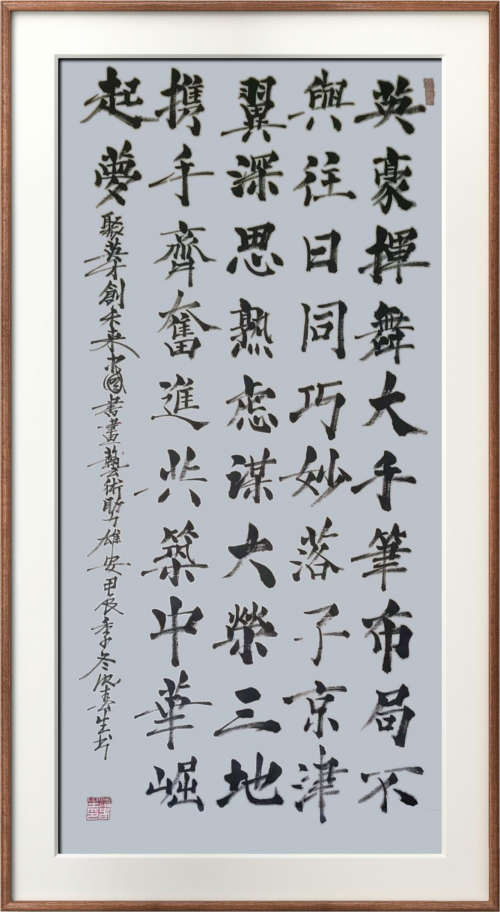 英豪揮舞大手筆布局不
與往日同巧妙落子京津
翼深思熟虑謀大榮三地
携手齊奮進共築中華崛
起夢
聚英才創未来中國書畫藝術聚雄安甲辰季冬